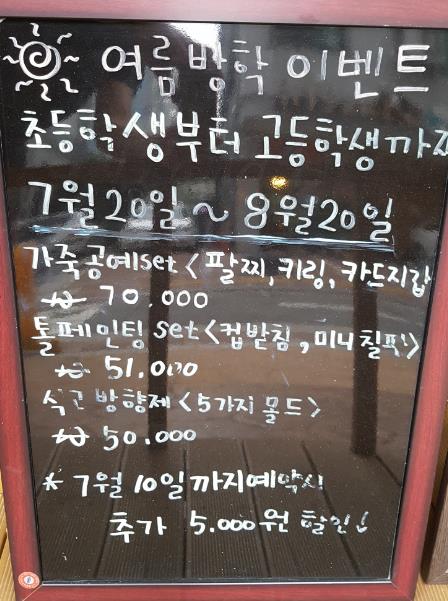 여름방학 이벤트
초등학생부터 고등학생까지
7월20일 ~ 8월20일
가죽공예set <팔찌, 키링, 카드지갑
₩ 70.000
톨페인팅 set <컵받침, 미니 칠판>
₩ 51.000
석고 방향제 <5가지 몰드>
₩ 50.000
* 7월 10일까지예약시
추가 5.000원 할인!